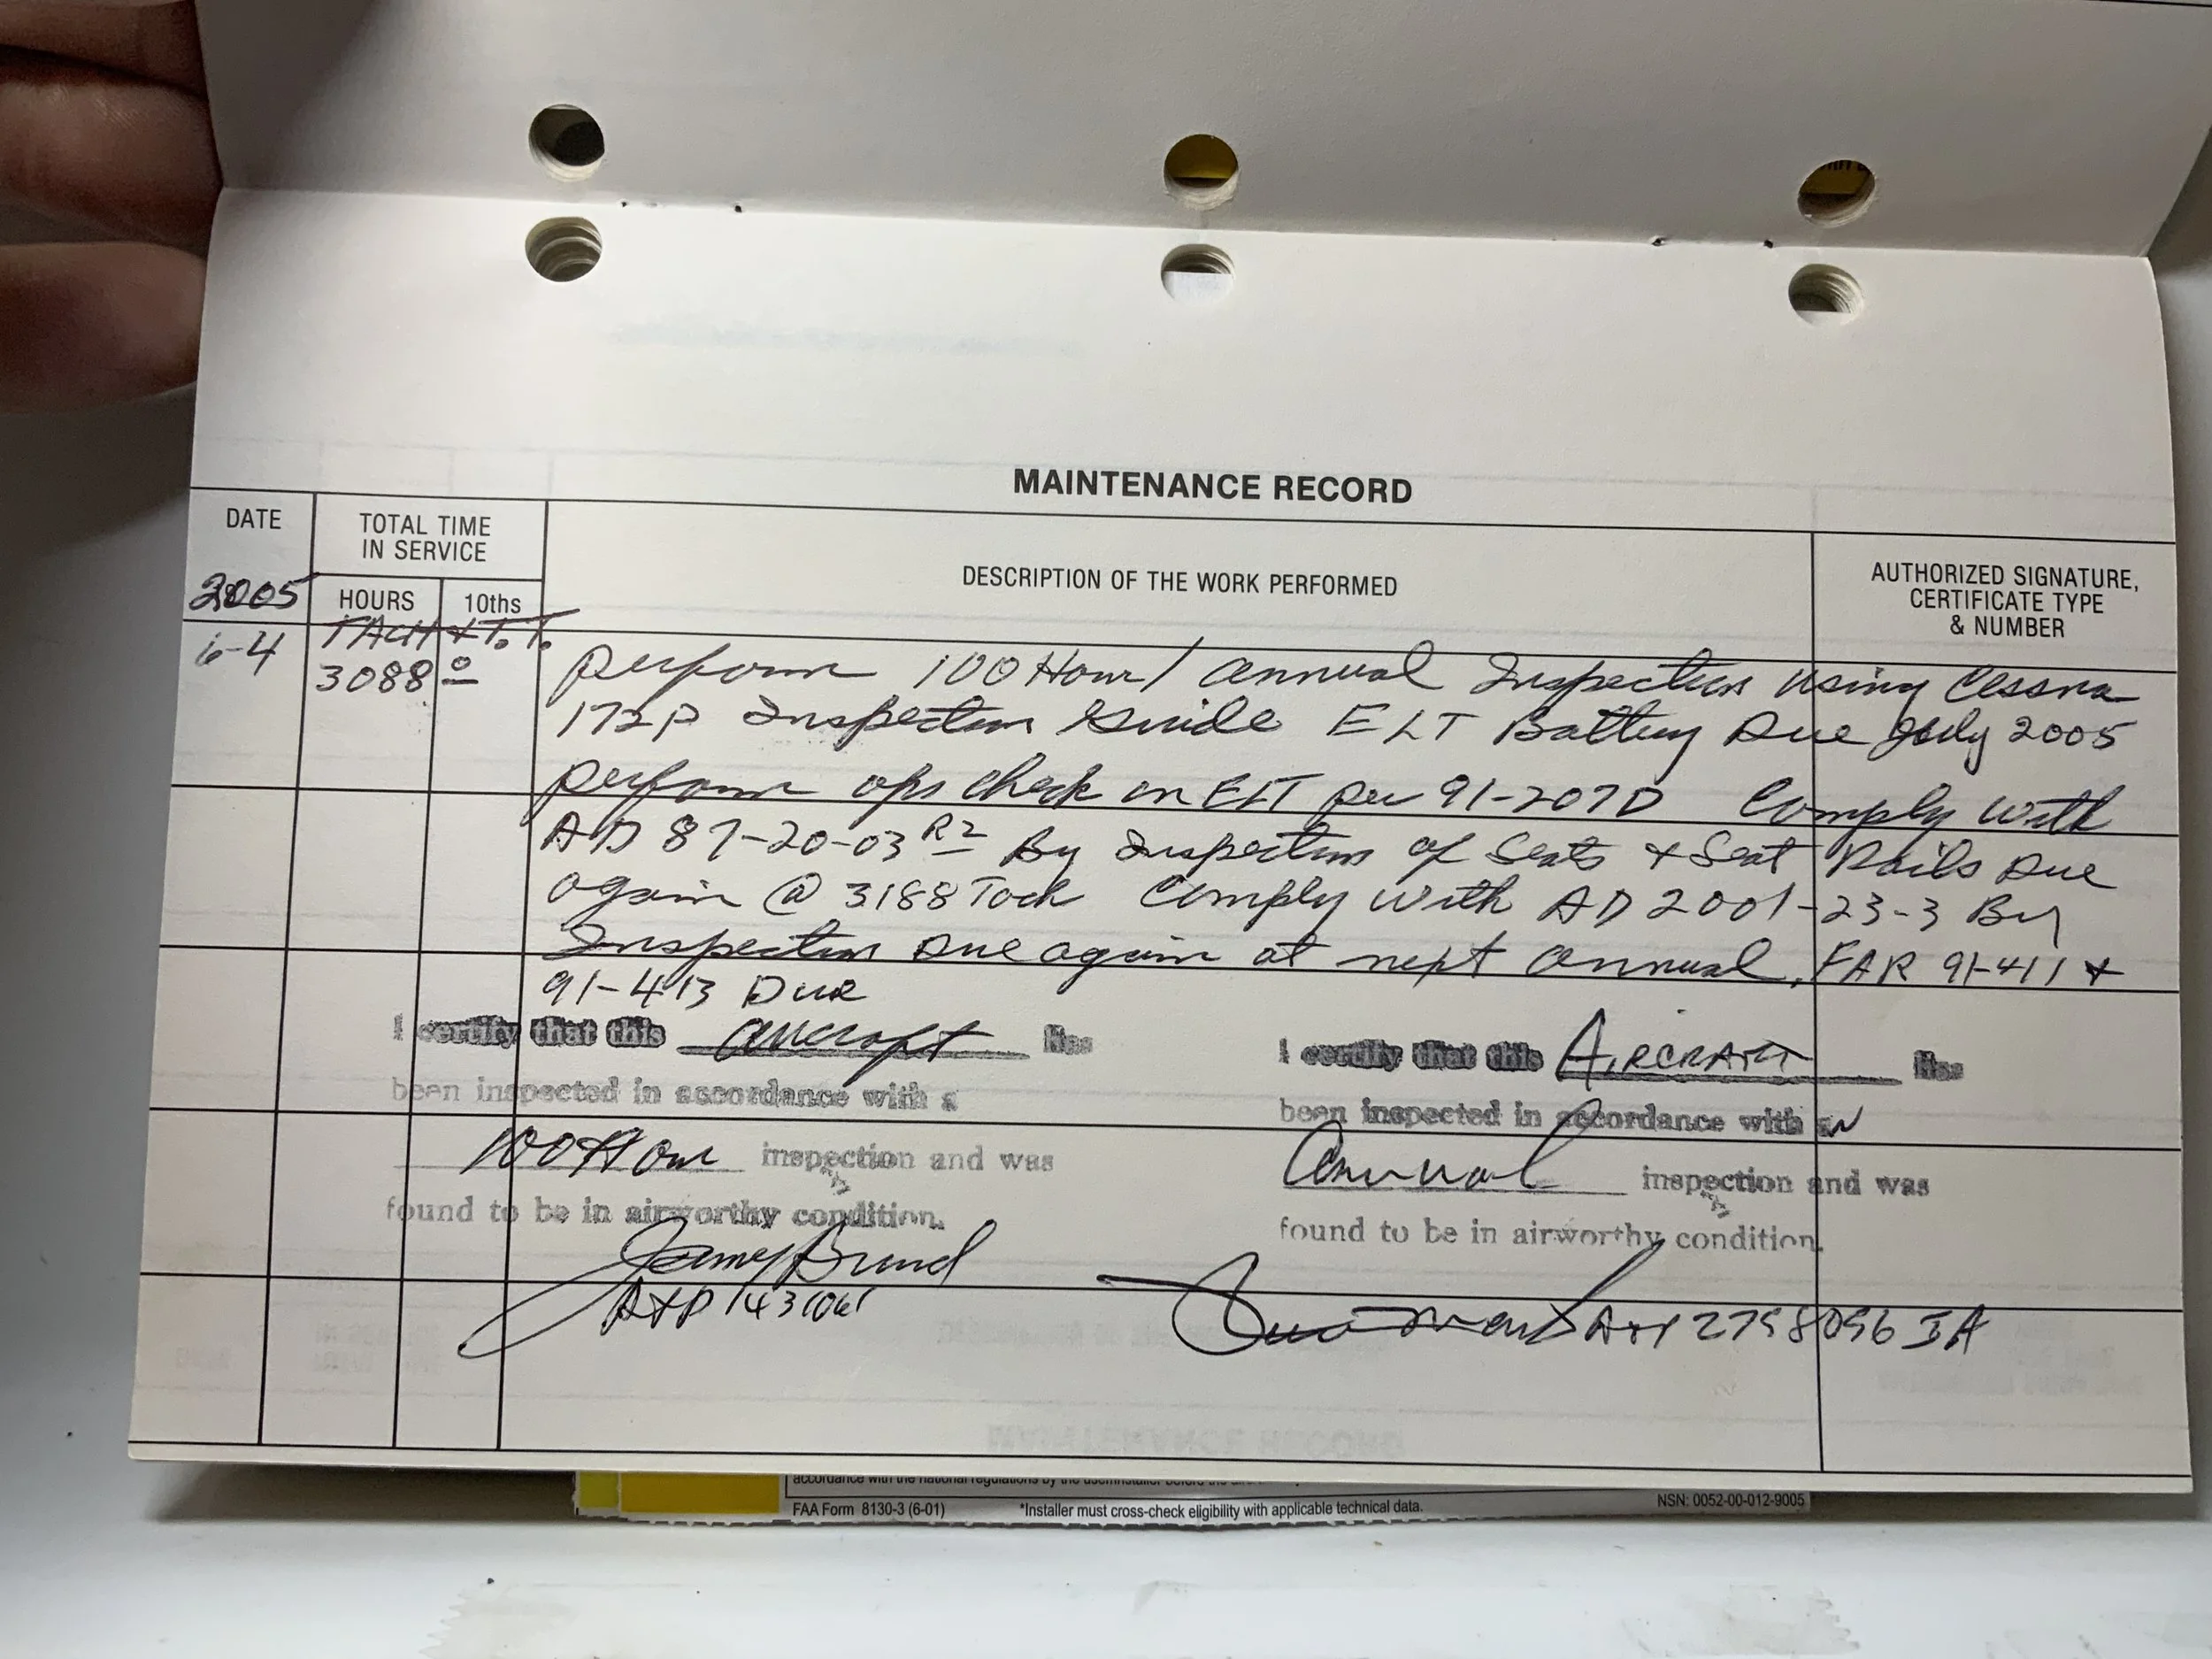 MAINTENANCE RECORD
DATE
TOTAL TIME
IN SERVICE
HOURS
10ths
DESCRIPTION OF THE WORK PERFORMED
AUTHORIZED SIGNATURE,
CERTIFICATE TYPE
& NUMBER
2005
TACH & T.T.
6-4
3088 0
perform 100 Hour / annual Inspection using Cessna
172P Inspection Guide ELT Battery Due July 2005
perform ops check on ELT per 91-207D Comply with
AD 87-20-03 R2 By Inspection of Seats + Seat Rails Due
again @ 3188 Tach Comply with AD 2001-23-3 By
Inspection Due again at next annual. FAR 91-411 +
91-413 Due
I certify that this aircraft has
been inspected in accordance with a
100 Hour inspection and was
found to be in airworthy condition.
A+P
I certify that this AIRCRAFT has
been inspected in accordance with an
Annual inspection and was
found to be in airworthy condition.
A+P 2798096 IA
FAA Form 8130-3 (6-01)
*Installer must cross-check eligibility with applicable technical data.
NSN: 0052-00-012-9005